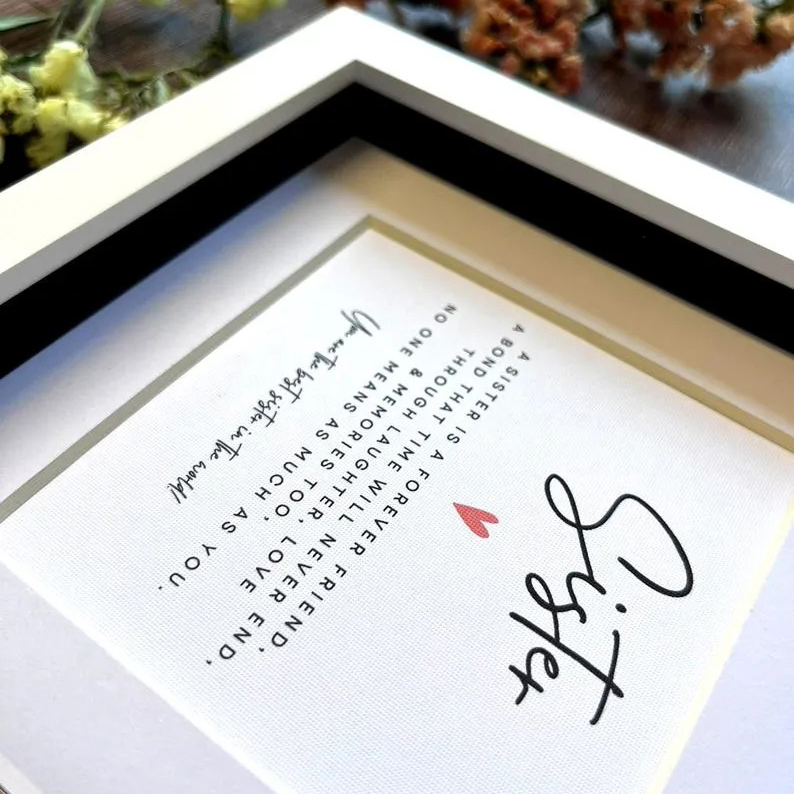 Sister
A SISTER IS A FOREVER FRIEND,
A BOND THAT TIME WILL NEVER END,
THROUGH LAUGHTER, LOVE
& MEMORIES TOO,
NO ONE MEANS AS MUCH AS YOU.
You are the best sister in the world!